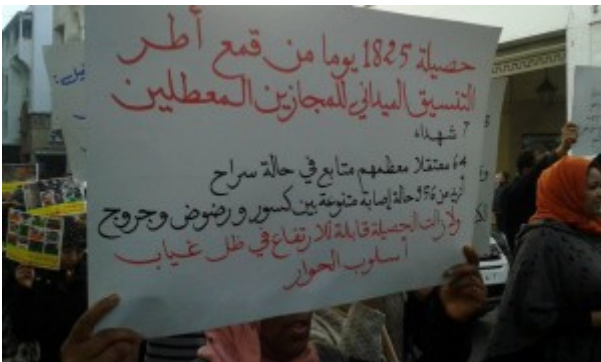 حصيلة 1825 يوما من قمع أطر
التنسيق الميداني للمجازين المعطلين
7 شهداء
64 معتقلا معظمهم متابع في حالة سراح
أزيد من 956 حالة إصابة متنوعة بين كسور ورضوض وجروح
ولازالت الحصيلة قابلة للارتفاع في ظل غياب
أسلوب الحوار